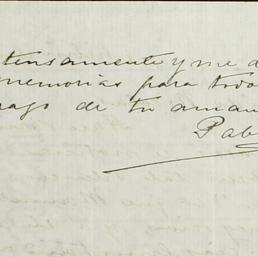 tensamente y me d
memorias para todo
rago de tu aman
Pab